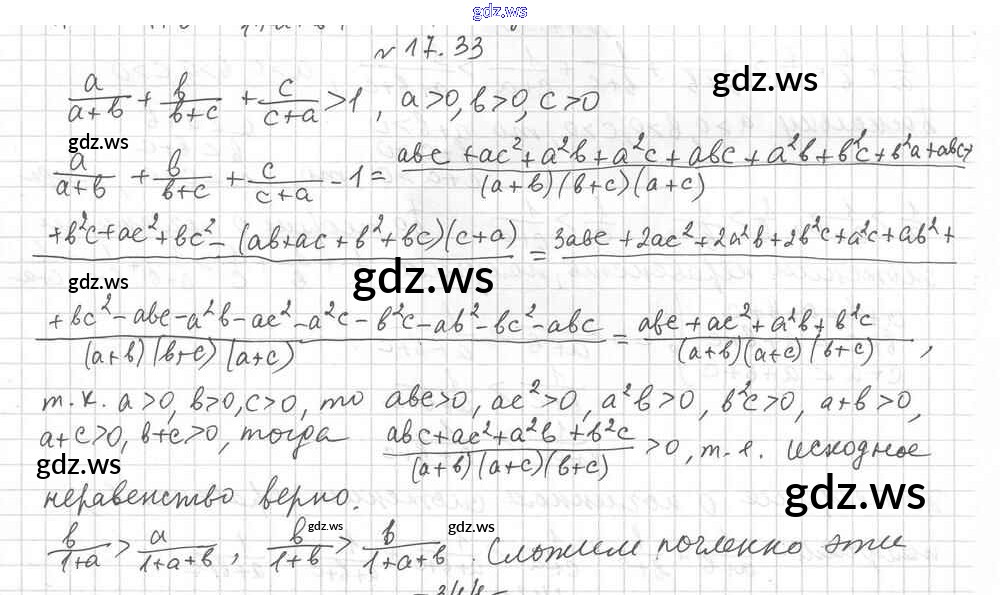 gdz.ws
№ 17.33
gdz.ws
a/(a+b) + b/(b+c) + c/(c+a) > 1, a>0, b>0, c>0
gdz.ws
a/(a+b) + b/(b+c) + c/(c+a) - 1 = (abc + ac² + a²b + a²c + abc + a²b + b²c + b²a + abc +)/((a+b)(b+c)(a+c))
+ b²c + ac² + bc² - (ab + ac + b² + bc)(c+a) = 3abc + 2ac² + 2a²b + 2b²c + a²c + ab² +
gdz.ws
gdz.ws
(+ bc² - abc - a²b - ac² - a²c - b²c - ab² - bc² - abc)/((a+b)(b+c)(a+c)) = (abc + ac² + a²b + b²c)/((a+b)(a+c)(b+c)),
т.к. a>0, b>0, c>0, то abc>0, ac²>0, a²b>0, b²c>0, a+b>0,
a+c>0, b+c>0, тогда (abc + ac² + a²b + b²c)/((a+b)(a+c)(b+c)) > 0, т.е. исходное
gdz.ws
gdz.ws
неравенство верно.
gdz.ws
gdz.ws
b/(1+a) > a/(1+a+b), b/(1+b) > b/(1+a+b). Сложим почленно эти